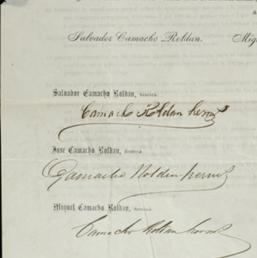 Salvador Camacho Roldan. Mig
Salvador Camacho Roldan, firmará,
Camacho Roldan herms
Jose Camacho Roldan, firmará,
Camacho Roldan herms
Miguel Camacho Roldan, firmará,
Camacho Roldan herms